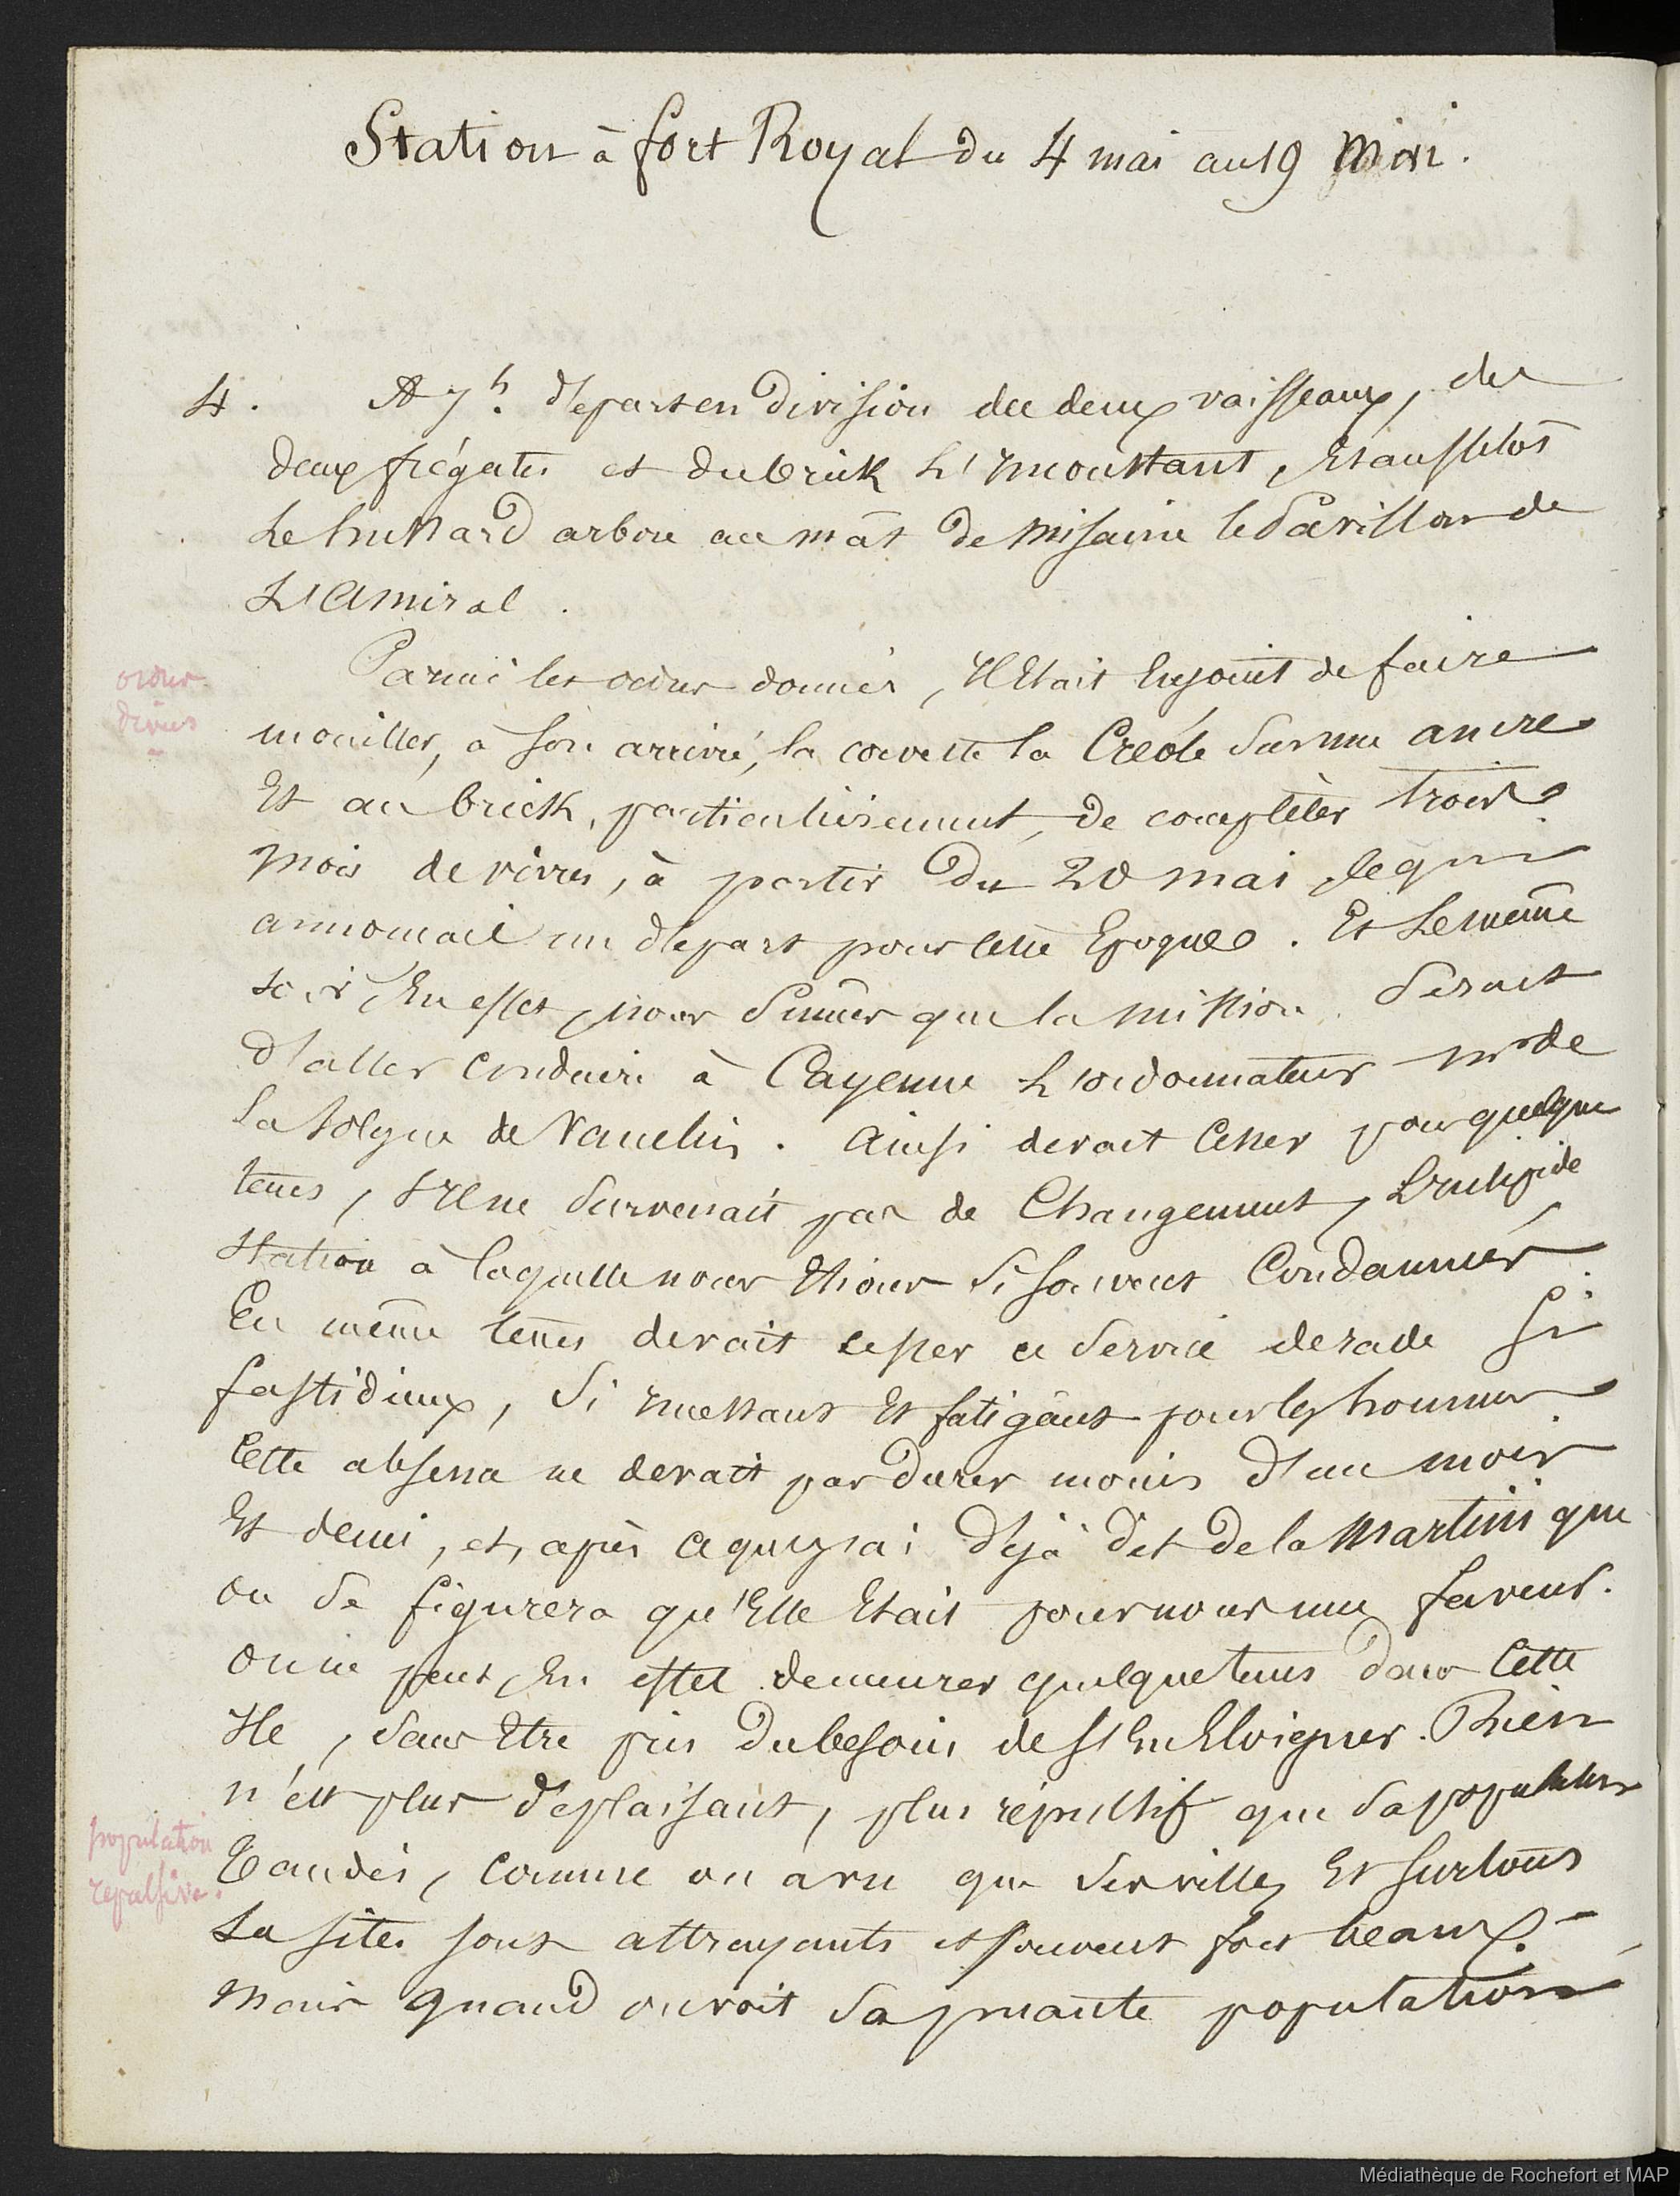 Station à fort Royal du 4 mai au 19 Mai.
4. A 7h. départ en Division des deux vaisseaux, des
deux frégates et du brick L'inconstant, Et aussitôt
Le hussard arbore au mât de Misaine le Pavillon de
L'Amiral.
Parmi les ordres donnés, Il Etait Enjoint de faire
ordres
divers
mouiller, à son arrivée, la corvette la Créole Sur une ancre
Et au brick, particulièrement, de compléter trois
mois de vivres, à partir du 20 mai, ce qui
annonçait un départ pour cette Epoque. Et Le même
soir, En effet, nous Sumes que la mission Serait
d'aller conduire à Cayenne L'ordonnateur Mr de
la Solgne de Vauclin. Ainsi devait Cesser pour quelque
tems, S'il ne Survenait pas de Changement, L'insipide
Station à laquelle nous Etions Si Souvent Condamnés.
En même tems devait cesser ce Service de rade Si
fastidieux, Si incessant Et fatigant pour les hommes.
Cette absence ne devait pas durer moins d'un mois
Et demi, et, après ce que j'ai déjà dit de la Martinique
on Se figurera qu'Elle Etait pour nous une faveur.
On ne peut, En effet demeurer quelque tems dans Cette
Ile, Sans Etre pris du besoin de S'En Eloigner. Rien
n'est plus déplaisant, plus répulsif que Sa population
population
repulsive.
Tandis, comme on a vu que Ses villes Et Surtout
Les sites sont attrayants et souvent fort beaux. -
Mais quand on voit Sa puante population
Médiathèque de Rochefort et MAP